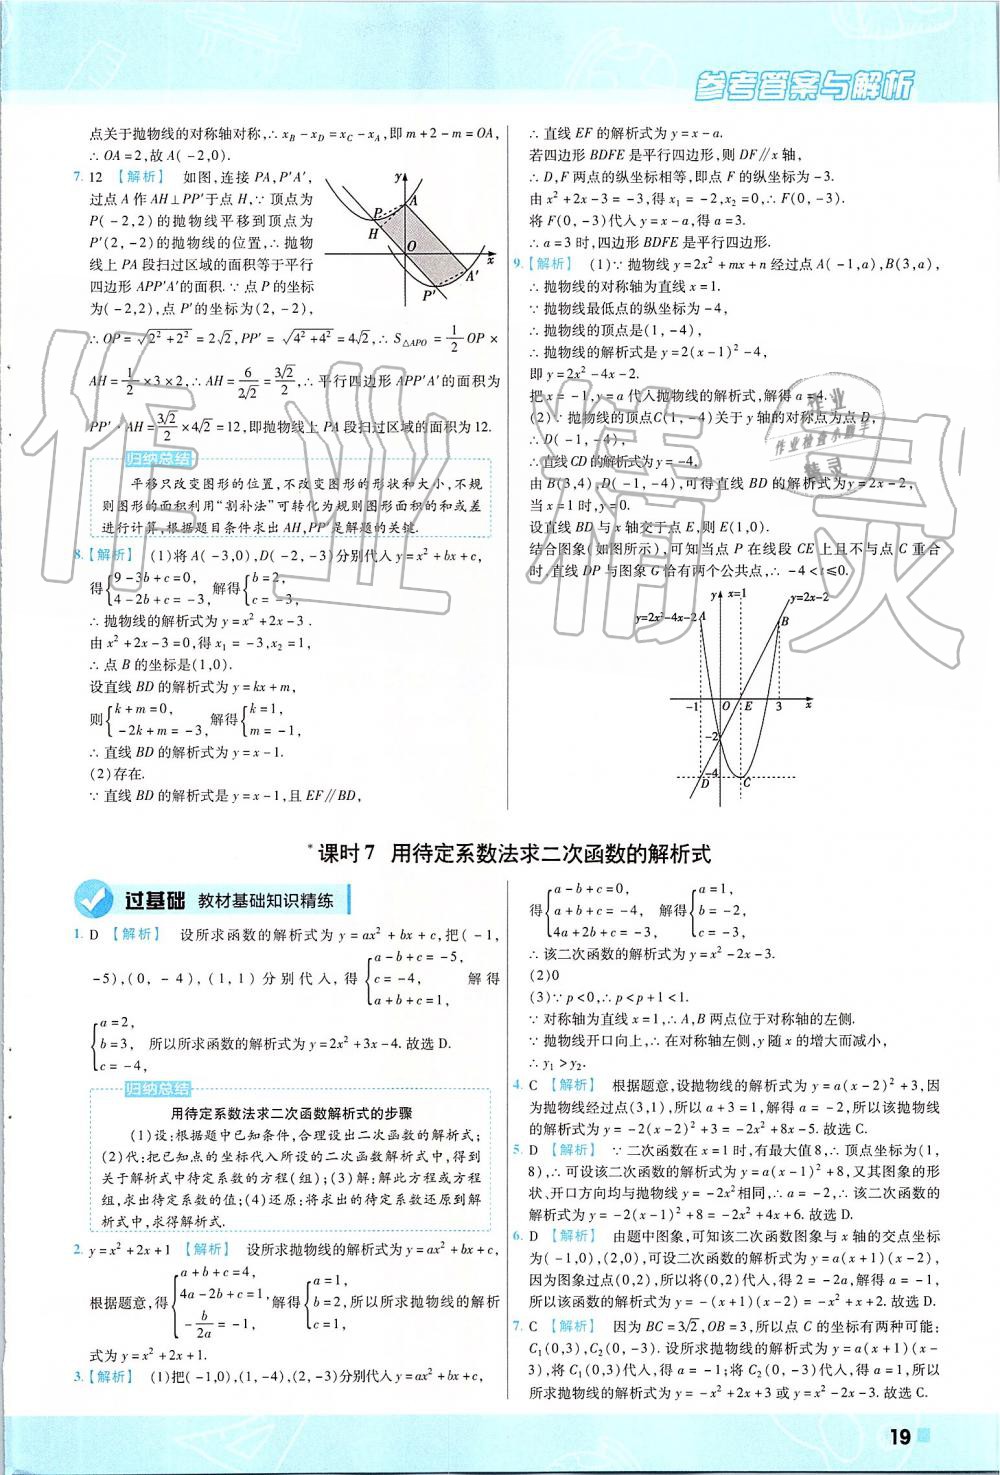 参考答案与解析
点关于抛物线的对称轴对称,∴x_B-x_D=x_C-x_A,即m+2-m=OA,
∴OA=2,故A(-2,0).
7. 12 【解析】 如图,连接PA,P'A',
过点A作AH⊥PP'于点H,∵顶点为
P(-2,2)的抛物线平移到顶点为
P'(2,-2)的抛物线的位置,∴抛物
线上PA段扫过区域的面积等于平行
四边形APP'A'的面积.∵点P的坐标
为(-2,2),点P'的坐标为(2,-2),
∴OP=√(2²+2²)=2√2,PP'=√(4²+4²)=4√2,∴S△APO=1/2 OP×
AH=1/2×3×2,∴AH=6/(2√2)=3√2/2,∴平行四边形APP'A'的面积为
PP'·AH=3√2/2×4√2=12,即抛物线上PA段扫过区域的面积为12.
y
A
P
H
O
x
A'
P'
归纳总结
平移只改变图形的位置,不改变图形的形状和大小,不规
则图形的面积利用“割补法”可转化为规则图形的面积的和或差
进行计算,根据题目条件求出AH,PP'是解题的关键.
8.【解析】 (1)将A(-3,0),D(-2,-3)分别代入y=x²+bx+c,
得{9-3b+c=0, 4-2b+c=-3, 解得{b=2, c=-3,
∴抛物线的解析式为y=x²+2x-3.
由x²+2x-3=0,得x₁=-3,x₂=1,
∴点B的坐标是(1,0).
设直线BD的解析式为y=kx+m,
则{k+m=0, -2k+m=-3, 解得{k=1, m=-1,
∴直线BD的解析式为y=x-1.
(2)存在.
∵直线BD的解析式是y=x-1,且EF∥BD,
∴直线EF的解析式为y=x-a.
若四边形BDFE是平行四边形,则DF∥x轴,
∴D,F两点的纵坐标相等,即点F的纵坐标为-3.
由x²+2x-3=-3,得x₁=-2,x₂=0,∴F(0,-3).
将F(0,-3)代入y=x-a,得a=3.
∴a=3时,四边形BDFE是平行四边形.
9.【解析】 (1)∵抛物线y=2x²+mx+n经过点A(-1,a),B(3,a),
∴抛物线的对称轴为直线x=1.
∵抛物线最低点的纵坐标为-4,
∴抛物线的顶点是(1,-4),
∴抛物线的解析式是y=2(x-1)²-4,
即y=2x²-4x-2.
把x=-1,y=a代入抛物线的解析式,解得a=4.
(2)∵抛物线的顶点C(1,-4)关于y轴的对称点为点D,
∴D(-1,-4),
∴直线CD的解析式为y=-4.
由B(3,4),D(-1,-4),可得直线BD的解析式为y=2x-2,
当x=1时,y=0.
设直线BD与x轴交于点E,则E(1,0).
结合图象(如图所示),可知当点P在线段CE上且不与点C重合
时,直线DP与图象G恰有两个公共点,∴-4<t≤0.
y
x=1
y=2x-2
y=2x²-4x-2
A
B
-1
O
E
3
x
-2
-4
D
C
*课时7 用待定系数法求二次函数的解析式
过基础 教材基础知识精练
1. D 【解析】 设所求函数的解析式为y=ax²+bx+c,把(-1,
-5),(0,-4),(1,1)分别代入,得{a-b+c=-5, c=-4, a+b+c=1, 解得
{a=2, b=3, c=-4, 所以所求函数的解析式为y=2x²+3x-4.故选D.
归纳总结
用待定系数法求二次函数解析式的步骤
(1)设:根据题中已知条件,合理设出二次函数的解析式;
(2)代:把已知点的坐标代入所设的二次函数解析式中,得到
关于解析式中待定系数的方程(组);(3)解:解此方程或方程
组,求出待定系数的值;(4)还原:将求出的待定系数还原到解
析式中,求得解析式.
2. y=x²+2x+1 【解析】 设所求抛物线的解析式为y=ax²+bx+c,
根据题意,得{a+b+c=4, 4a-2b+c=1, -b/2a=-1, 解得{a=1, b=2, c=1, 所以所求抛物线的解析
式为y=x²+2x+1.
3.【解析】 (1)把(-1,0),(1,-4),(2,-3)分别代入y=ax²+bx+c,
得{a-b+c=0, a+b+c=-4, 4a+2b+c=-3, 解得{a=1, b=-2, c=-3,
∴该二次函数的解析式为y=x²-2x-3.
(2)0
(3)∵p<0,∴p<p+1<1.
∵对称轴为直线x=1,∴A,B两点位于对称轴的左侧.
∵抛物线开口向上,∴在对称轴左侧,y随x的增大而减小,
∴y₁>y₂.
4. C 【解析】 根据题意,设抛物线的解析式为y=a(x-2)²+3,因
为抛物线经过点(3,1),所以a+3=1,解得a=-2,所以该抛物线
的解析式为y=-2(x-2)²+3=-2x²+8x-5.故选C.
5. D 【解析】 ∵二次函数在x=1时,有最大值8,∴顶点坐标为(1,
8),∴可设该二次函数的解析式为y=a(x-1)²+8,又其图象的形
状、开口方向均与抛物线y=-2x²相同,∴a=-2,∴该二次函数的
解析式为y=-2(x-1)²+8=-2x²+4x+6.故选D.
6. D 【解析】 由题中图象,可知该二次函数图象与x轴的交点坐标
为(-1,0),(2,0),可设二次函数的解析式为y=a(x+1)(x-2),
因为图象过点(0,2),所以将(0,2)代入,得2=-2a,解得a=-1,
所以该函数的解析式为y=-(x+1)(x-2)=-x²+x+2.故选D.
7. C 【解析】 因为BC=3√2,OB=3,所以点C的坐标有两种可能:
C₁(0,3),C₂(0,-3).设所求抛物线的解析式为y=a(x+1)(x-
3),将C₁(0,3)代入,得a=-1;将C₂(0,-3)代入,得a=1,所以
所求抛物线的解析式为y=-x²+2x+3或y=x²-2x-3.故选C.
19
作业精灵
作业
作业检查小助手
精灵